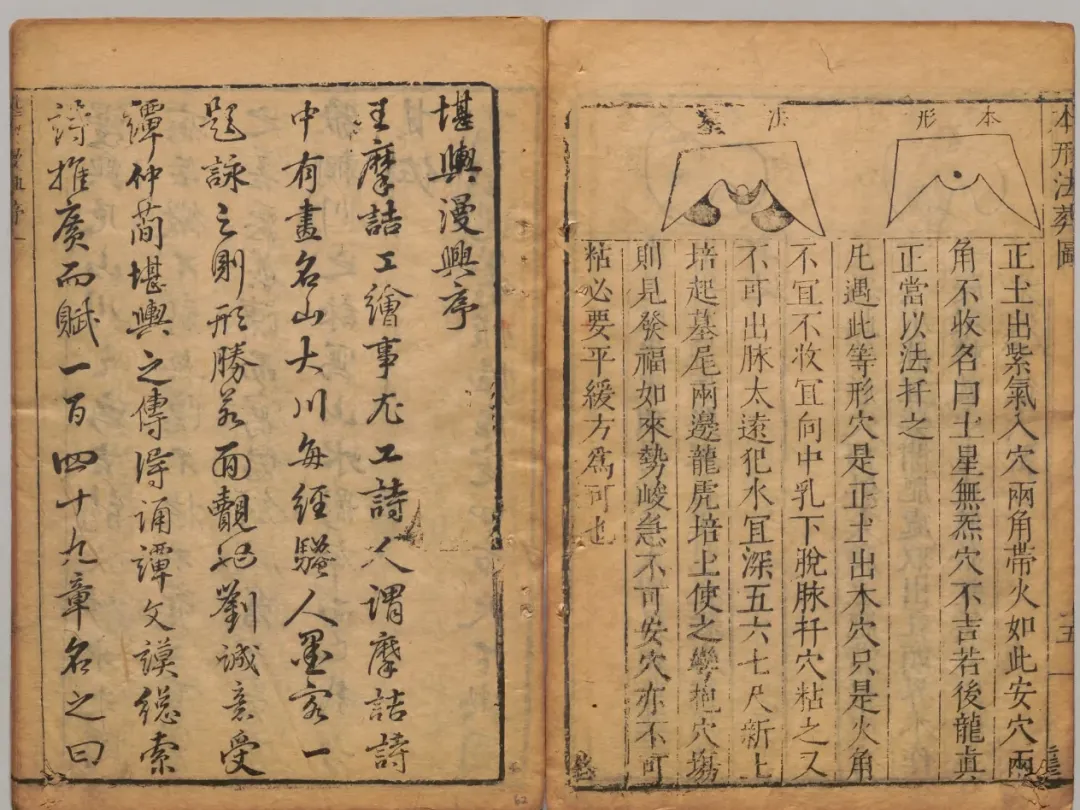 本形法葬圖
本形
法葬
正土出紫氣入穴兩角帶火如此安穴兩
角不收名曰土星無炁穴不吉若後龍真
正當以法扦之
凡遇此等形穴是正土出木穴只是火角
不宜不收宜向中乳下脫脉扦穴粘之又
不可出脉太遠犯水宜深五六七尺新土
培起墓尾兩邊龍虎培土使之彎抱穴塲
則見發福如來勢峻急不可安穴亦不可
粘必要平緩方爲可也
五
堪輿漫興序
王摩詰工繪事尤工詩人謂摩詰詩
中有畫名山大川每經騷人墨客一
題詠之則形勝若面覿也劉誠意受
譚仲簡堪輿之傳得誦譚文謨總索
詩推廣而賦一百四十九章名之曰